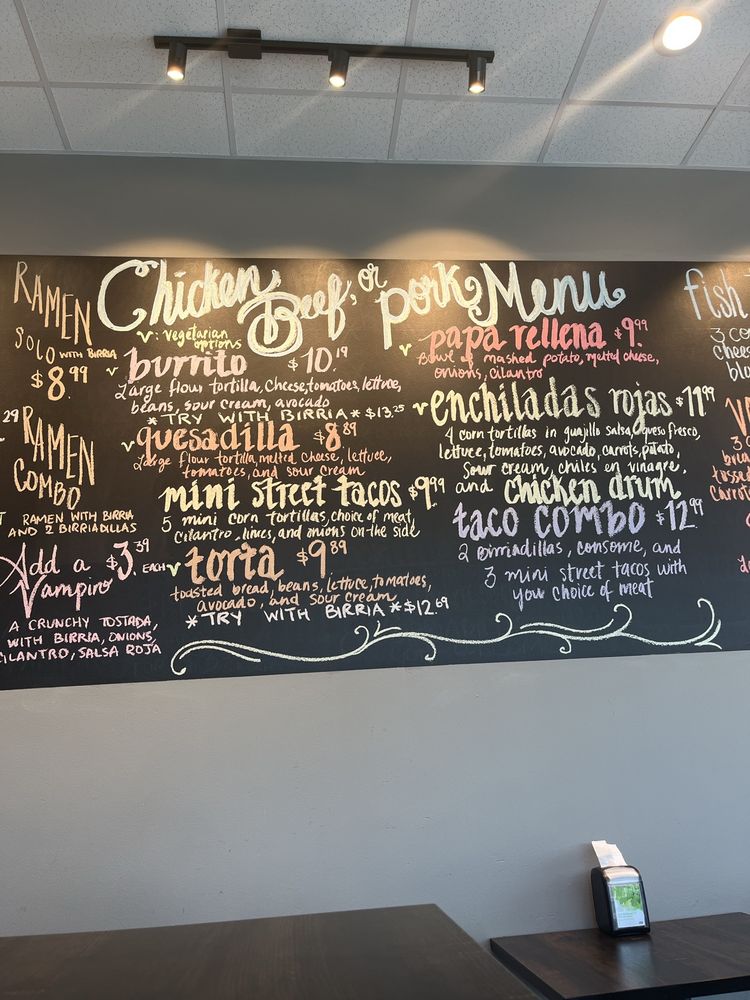 RAMEN
SOLO WITH BIRRIA
$8.99
29
RAMEN
COMBO
RAMEN WITH BIRRIA
AND 2 BIRRIADILLAS
Add a $3.39 EACH
Vampiro
A CRUNCHY TOSTADA,
WITH BIRRIA, ONIONS,
CILANTRO, SALSA ROJA
Chicken Beef, or Pork Menu
v: vegetarian
options
v burrito $10.19
Large flour tortilla, cheese, tomatoes, lettuce,
beans, sour cream, avocado
*TRY WITH BIRRIA* $13.25
v quesadilla $8.89
Large flour tortilla, melted cheese, lettuce,
tomatoes, and sour cream
mini street tacos $9.99
5 mini corn tortillas, choice of meat,
cilantro, limes, and onions on the side
v torta $9.89
toasted bread, beans, lettuce, tomatoes,
avocado, and sour cream
*TRY WITH BIRRIA* $12.69
v papa rellena $9.99
Bowl of mashed potato, melted cheese,
onions, cilantro
v enchiladas rojas $11.99
4 corn tortillas in guajillo salsa, queso fresco,
lettuce, tomatoes, avocado, carrots, potato,
sour cream, chiles en vinagre,
and chicken drum
taco combo $12.99
2 birriadillas, consome, and
3 mini street tacos with
your choice of meat
fish
3 co
chees